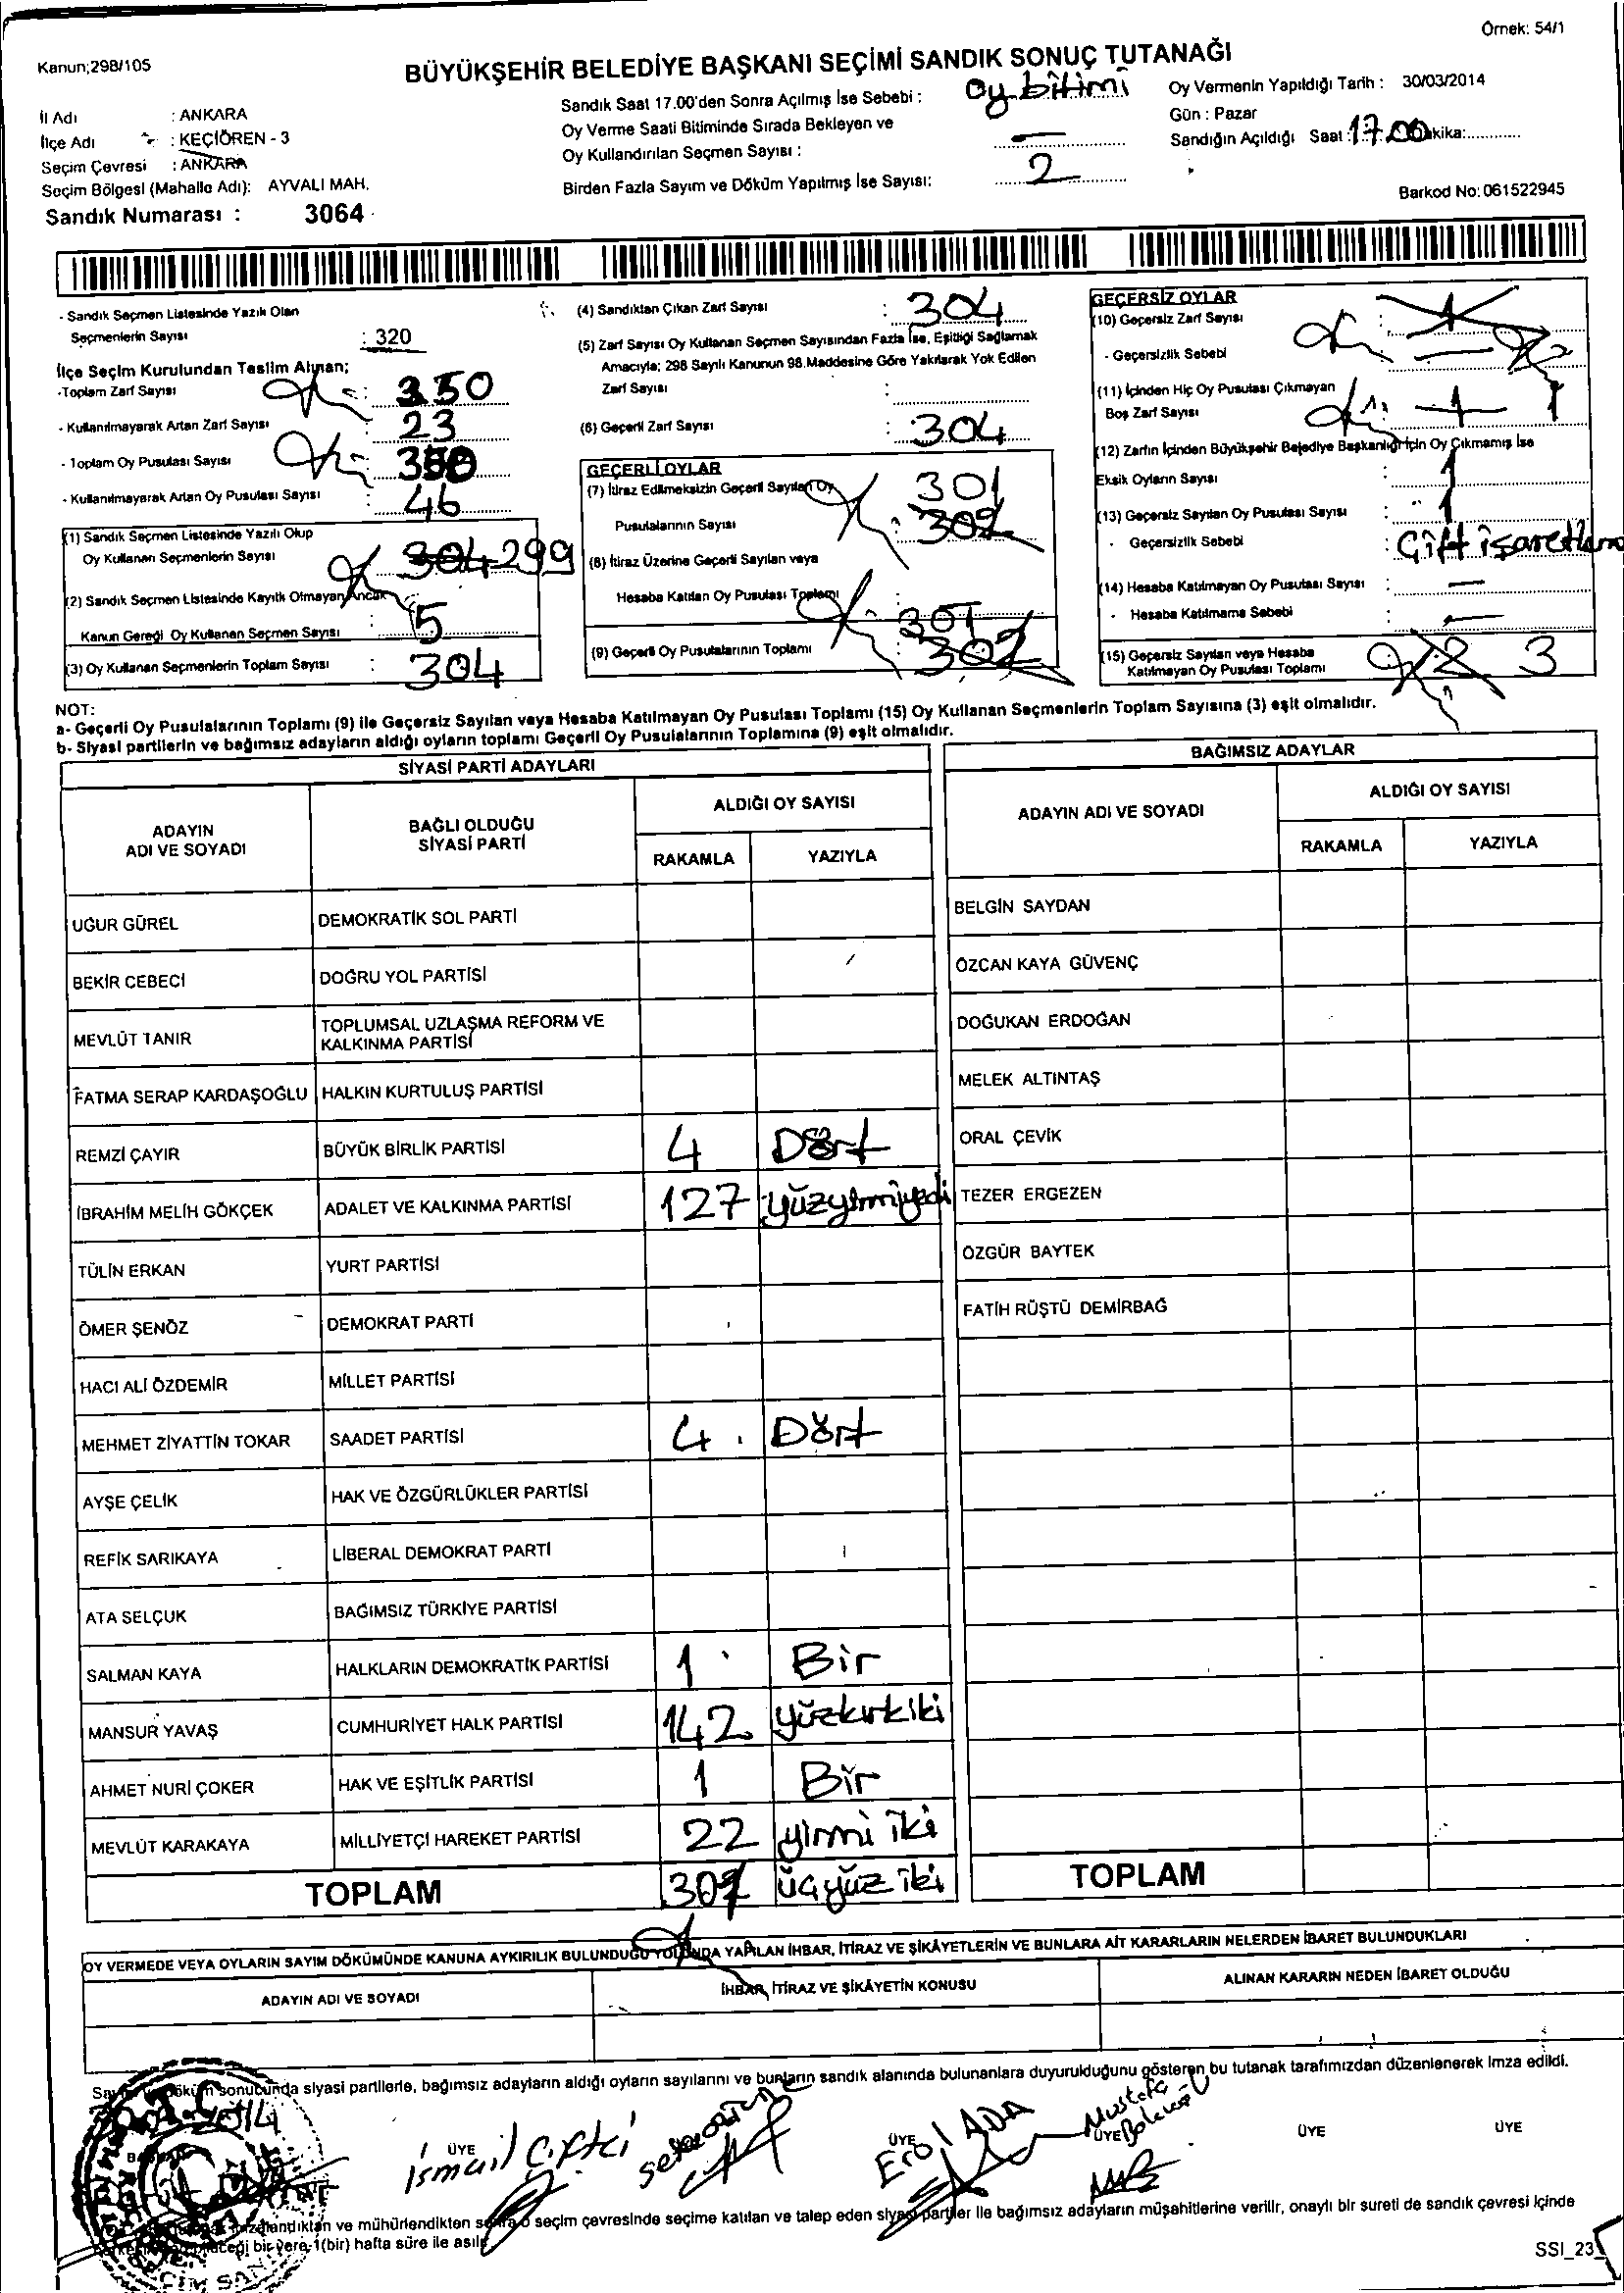 Örnek: 54/1
Kanun;298/105
BÜYÜKŞEHİR BELEDİYE BAŞKANI SEÇİMİ SANDIK SONUÇ TUTANAĞI
İl Adı : ANKARA
İlçe Adı : KEÇİÖREN - 3
Seçim Çevresi : ANKARA
Seçim Bölgesi (Mahalle Adı): AYVALI MAH.
Sandık Numarası : 3064
Sandık Saat 17.00'den Sonra Açılmış İse Sebebi : Oy bitimi
Oy Verme Saati Bitiminde Sırada Bekleyen ve
Oy Kullandırılan Seçmen Sayısı : –
Birden Fazla Sayım ve Döküm Yapılmış İse Sayısı: 2
Oy Vermenin Yapıldığı Tarih : 30/03/2014
Gün : Pazar
Sandığın Açıldığı Saat : 17.00 kika:
Barkod No: 061522945
- Sandık Seçmen Listesinde Yazılı Olan
Seçmenlerin Sayısı : 320
İlçe Seçim Kurulundan Teslim Alınan;
-Toplam Zarf Sayısı : 350
- Kullanılmayarak Artan Zarf Sayısı : 23
- Toplam Oy Pusulası Sayısı : 350
- Kullanılmayarak Artan Oy Pusulası Sayısı : 46
(1) Sandık Seçmen Listesinde Yazılı Olup
Oy Kullanan Seçmenlerin Sayısı : 304 299
(2) Sandık Seçmen Listesinde Kayıtlı Olmayan Ancak
Kanun Gereği Oy Kullanan Seçmen Sayısı : 5
(3) Oy Kullanan Seçmenlerin Toplam Sayısı : 304
(4) Sandıktan Çıkan Zarf Sayısı : 304
(5) Zarf Sayısı Oy Kullanan Seçmen Sayısından Fazla İse, Eşitliği Sağlamak
Amacıyla; 298 Sayılı Kanunun 98.Maddesine Göre Yakılarak Yok Edilen
Zarf Sayısı :
(6) Geçerli Zarf Sayısı : 304
GEÇERLİ OYLAR
(7) İtiraz Edilmeksizin Geçerli Sayılan Oy 301
Pusulalarının Sayısı : 302
(8) İtiraz Üzerine Geçerli Sayılan veya
Hesaba Katılan Oy Pusulası Toplamı
301
(9) Geçerli Oy Pusulalarının Toplamı : 302
GEÇERSİZ OYLAR
(10) Geçersiz Zarf Sayısı : 1
- Geçersizlik Sebebi : –
(11) İçinden Hiç Oy Pusulası Çıkmayan
Boş Zarf Sayısı : 1
(12) Zarfın İçinden Büyükşehir Belediye Başkanlığı İçin Oy Çıkmamış İse
Eksik Oyların Sayısı : 1
(13) Geçersiz Sayılan Oy Pusulası Sayısı : 1
- Geçersizlik Sebebi : Çift işaretlem
(14) Hesaba Katılmayan Oy Pusulası Sayısı : –
- Hesaba Katılmama Sebebi : –
(15) Geçersiz Sayılan veya Hesaba
Katılmayan Oy Pusulası Toplamı : 2 3
NOT:
a- Geçerli Oy Pusulalarının Toplamı (9) ile Geçersiz Sayılan veya Hesaba Katılmayan Oy Pusulası Toplamı (15) Oy Kullanan Seçmenlerin Toplam Sayısına (3) eşit olmalıdır.
b- Siyasi partilerin ve bağımsız adayların aldığı oyların toplamı Geçerli Oy Pusulalarının Toplamına (9) eşit olmalıdır.
SİYASİ PARTİ ADAYLARI
ADAYIN
ADI VE SOYADI
BAĞLI OLDUĞU
SİYASİ PARTİ
ALDIĞI OY SAYISI
RAKAMLA YAZIYLA
UĞUR GÜREL DEMOKRATİK SOL PARTİ
BEKİR CEBECİ DOĞRU YOL PARTİSİ
MEVLÜT TANIR TOPLUMSAL UZLAŞMA REFORM VE
KALKINMA PARTİSİ
FATMA SERAP KARDAŞOĞLU HALKIN KURTULUŞ PARTİSİ
REMZİ ÇAYIR BÜYÜK BİRLİK PARTİSİ 4 Dört
İBRAHİM MELİH GÖKÇEK ADALET VE KALKINMA PARTİSİ 127 yüzyirmiyedi
TÜLİN ERKAN YURT PARTİSİ
ÖMER ŞENÖZ DEMOKRAT PARTİ
HACI ALİ ÖZDEMİR MİLLET PARTİSİ
MEHMET ZİYATTİN TOKAR SAADET PARTİSİ 4 Dört
AYŞE ÇELİK HAK VE ÖZGÜRLÜKLER PARTİSİ
REFİK SARIKAYA LİBERAL DEMOKRAT PARTİ
ATA SELÇUK BAĞIMSIZ TÜRKİYE PARTİSİ
SALMAN KAYA HALKLARIN DEMOKRATİK PARTİSİ 1 Bir
MANSUR YAVAŞ CUMHURİYET HALK PARTİSİ 142 yüzkırkiki
AHMET NURİ ÇOKER HAK VE EŞİTLİK PARTİSİ 1 Bir
MEVLÜT KARAKAYA MİLLİYETÇİ HAREKET PARTİSİ 22 yirmi iki
TOPLAM 302 üçyüz iki
BAĞIMSIZ ADAYLAR
ADAYIN ADI VE SOYADI
ALDIĞI OY SAYISI
RAKAMLA YAZIYLA
BELGİN SAYDAN
ÖZCAN KAYA GÜVENÇ
DOĞUKAN ERDOĞAN
MELEK ALTINTAŞ
ORAL ÇEVİK
TEZER ERGEZEN
ÖZGÜR BAYTEK
FATİH RÜŞTÜ DEMİRBAĞ
TOPLAM
OY VERMEDE VEYA OYLARIN SAYIM DÖKÜMÜNDE KANUNA AYKIRILIK BULUNDUĞU YOLUNDA YAPILAN İHBAR, İTİRAZ VE ŞİKÂYETLERİN VE BUNLARA AİT KARARLARIN NELERDEN İBARET BULUNDUKLARI
ADAYIN ADI VE SOYADI İHBAR, İTİRAZ VE ŞİKÂYETİN KONUSU ALINAN KARARIN NEDEN İBARET OLDUĞU
sonucunda siyasi partilerle, bağımsız adayların aldığı oyların sayılarını ve bunların sandık alanında bulunanlara duyurulduğunu gösteren bu tutanak tarafımızdan düzenlenerek imza edildi.
ÜYE ÜYE ÜYE ÜYE ÜYE
İsmail Çiftci Erol ADA Mustafa
ve mühürlendikten sonra o seçim çevresinde seçime katılan ve talep eden siyasi partiler ile bağımsız adayların müşahitlerine verilir, onaylı bir sureti de sandık çevresi içinde
bir yere 1(bir) hafta süre ile asılır
SSI_23